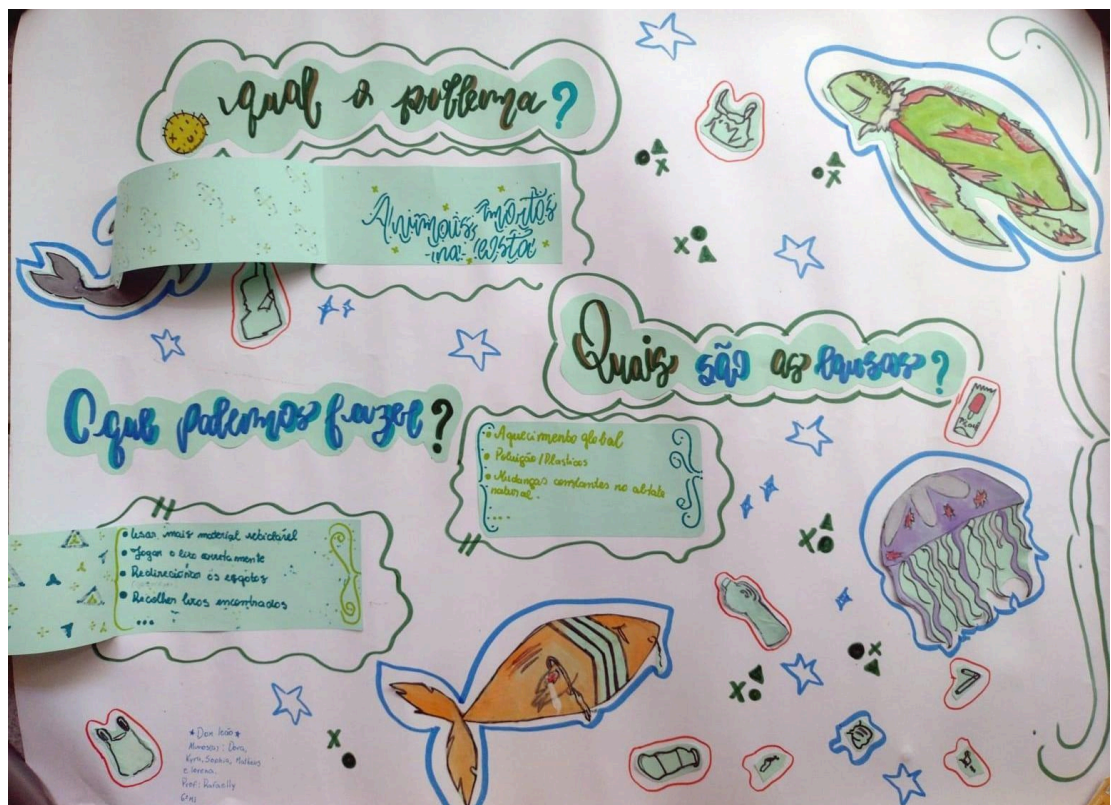 qual o problema?
Animais mortos
-na- costa
Quais são as causas?
• Aquecimento global
• Poluição/Plasticos
• Mudanças constantes no abtate
natural.
...
O que podemos fazer?
• Usar mais material reciclável
• Jogar o lixo corretamente
• Redirecionar os esgotos
• Recolher lixos encontrados
...
* Dom João *
Alunos(as): Dora,
Kyra, Sophia, Matheus
e Lorena.
Prof: Rafaelly
6º M1